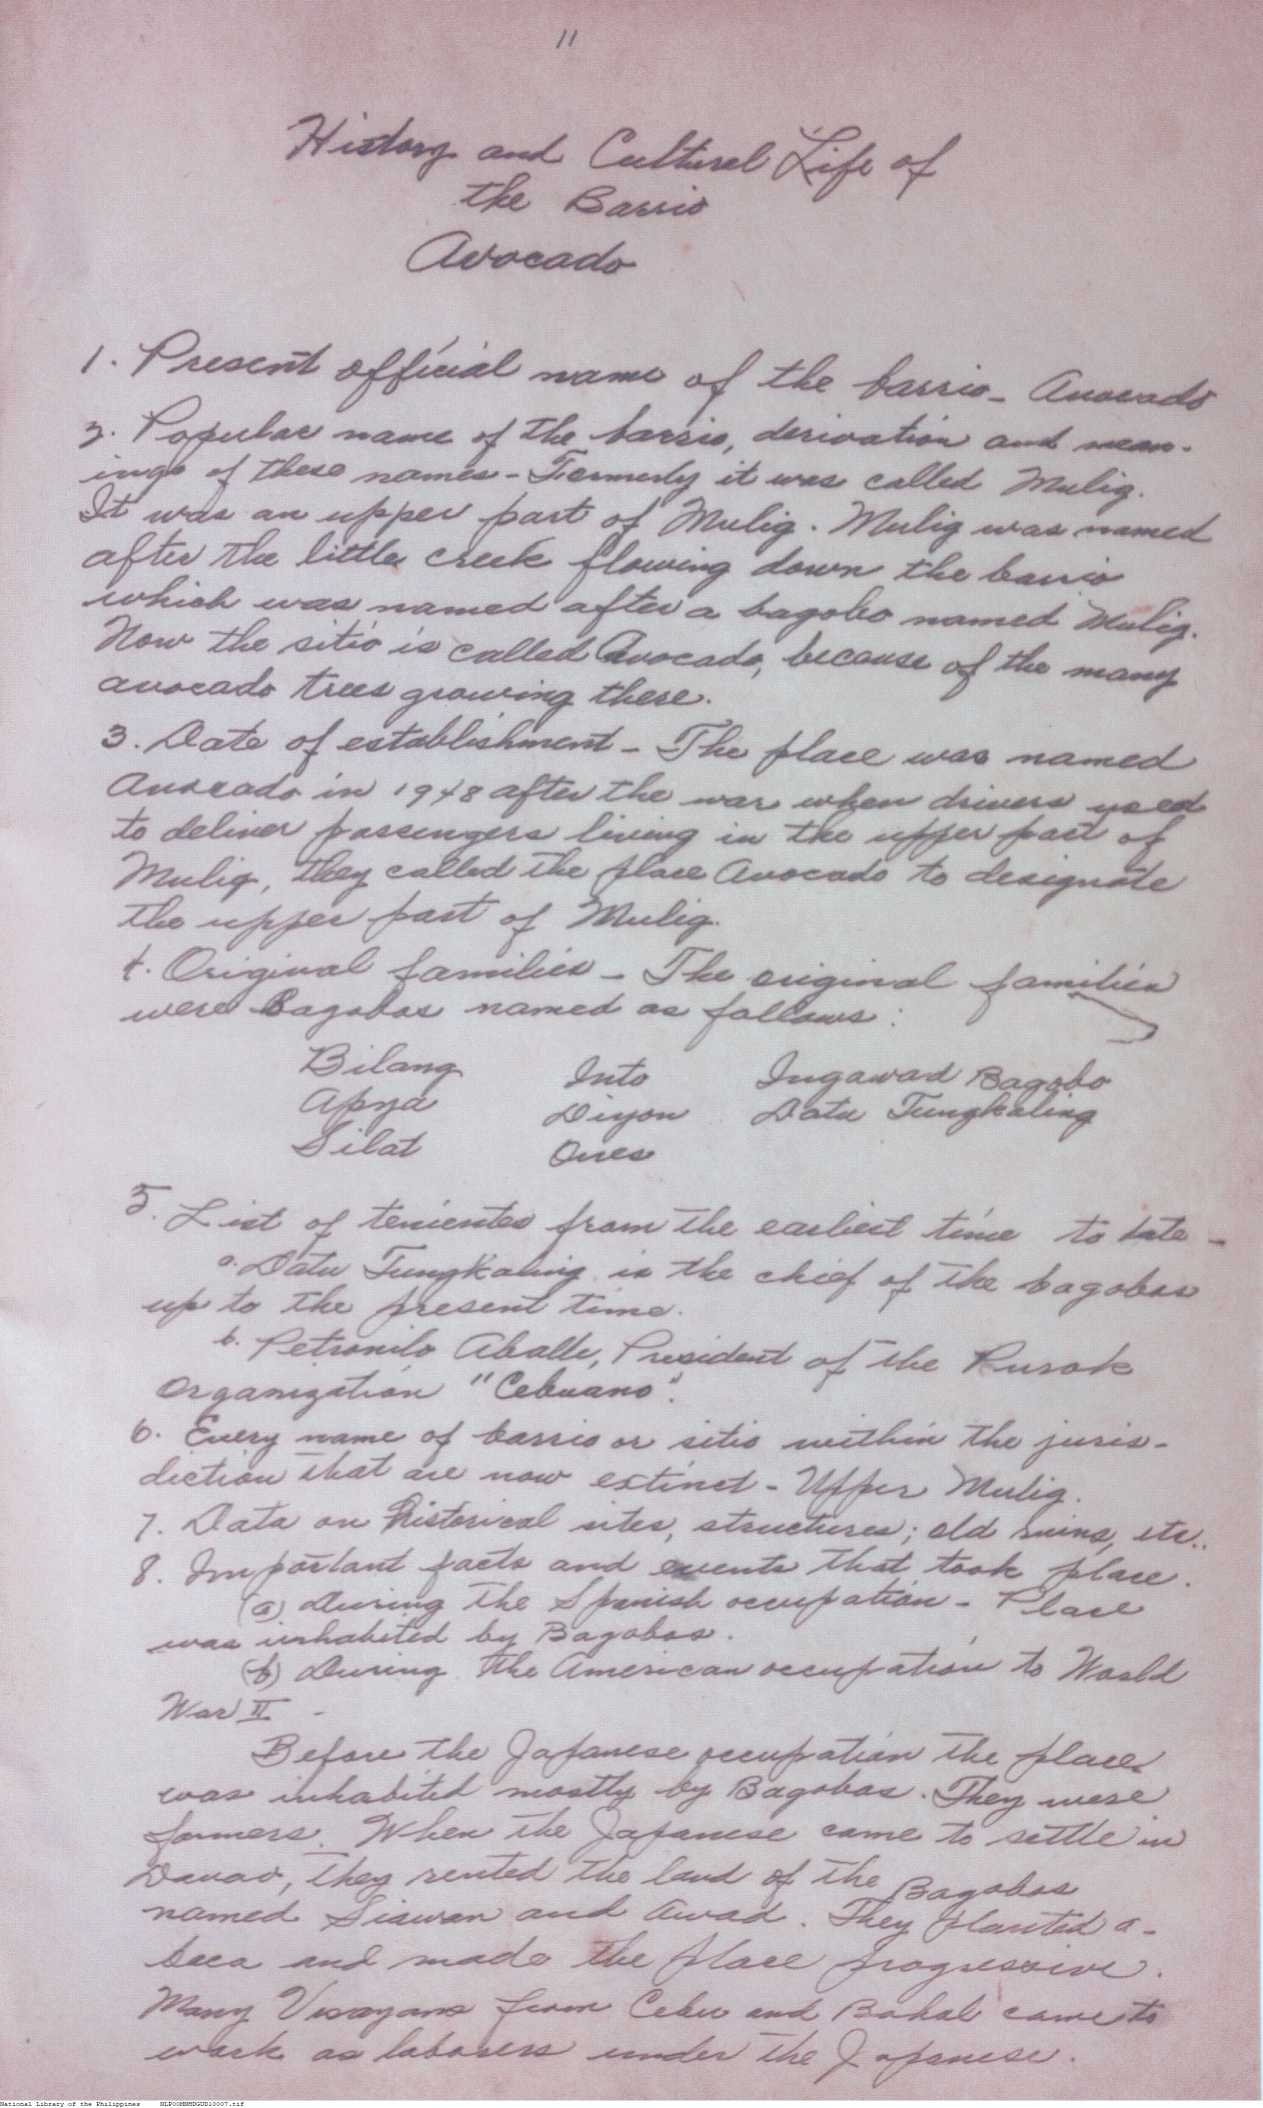 11
History and Cultural Life of
the Barrio
Avocado
1. Present official name of the barrio - Avocado
2. Popular name of the barrio, derivation and mean-
ings of these names - Formerly it was called Mulig.
It was an upper part of Mulig. Mulig was named
after the little creek flowing down the barrio
which was named after a bagobo named Mulig.
Now the sitio is called Avocado, because of the many
avocado trees growing there.
3. Date of establishment - The place was named
Avocado in 1948 after the war when drivers used
to deliver passengers living in the upper part of
Mulig, they called the place Avocado to designate
the upper part of Mulig.
4. Original families - The original families
were Bagobos named as follows:
Bilang Into Ingawad Bagobo
Apya Diyon Datu Tungkaling
Silat Ones
5. List of tenientes from the earliest time to date -
a. Datu Tungkaling is the chief of the bagobos
up to the present time.
b. Petronilo Aballe, President of the Purok
Organization "Cebuano".
6. Every name of barrio or sitio within the juris-
diction that are now extinct - Upper Mulig.
7. Data on historical sites, structures; old ruins, etc..
8. Important facts and events that took place.
(a) During the Spanish occupation - Place
was inhabited by Bagobos.
(b) During the American occupation to World
War II -
Before the Japanese occupation the place
was inhabited mostly by Bagobos. They were
farmers. When the Japanese came to settle in
Davao, they rented the land of the Bagobos
named Siawan and Awad. They planted a-
baca and made the place progressive.
Many Visayans from Cebu and Bohol came to
work as laborers under the Japanese.
National Library of the Philippines